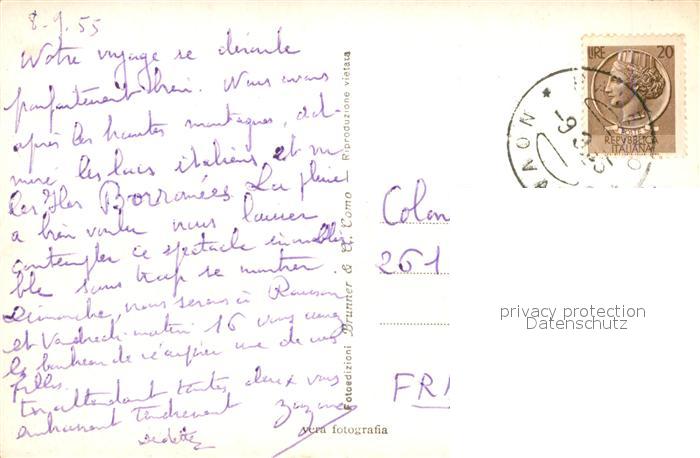 8-9.55
Notre voyage se déroule
parfaitement bien. Nous avons
après les hautes montagnes, ad-
miré les lacs italiens et
les Iles Borromées. La pluie
a bien voulu nous laisser
contempler ce spectacle inoublia-
ble sans trop se montrer.
Dimanche, nous serons à
et Vendredi matin 16 vous aurez
le bonheur de récupérer une de vos
filles.
En attendant toutes deux vous
embrassent tendrement
Fotoedizioni Brunner & C. Como Riproduzione vietata
vera fotografia
LIRE 20
POSTE
REPVBBLICA
ITALIANA
NOV
Colon
261
FRA
privacy protection
Datenschutz